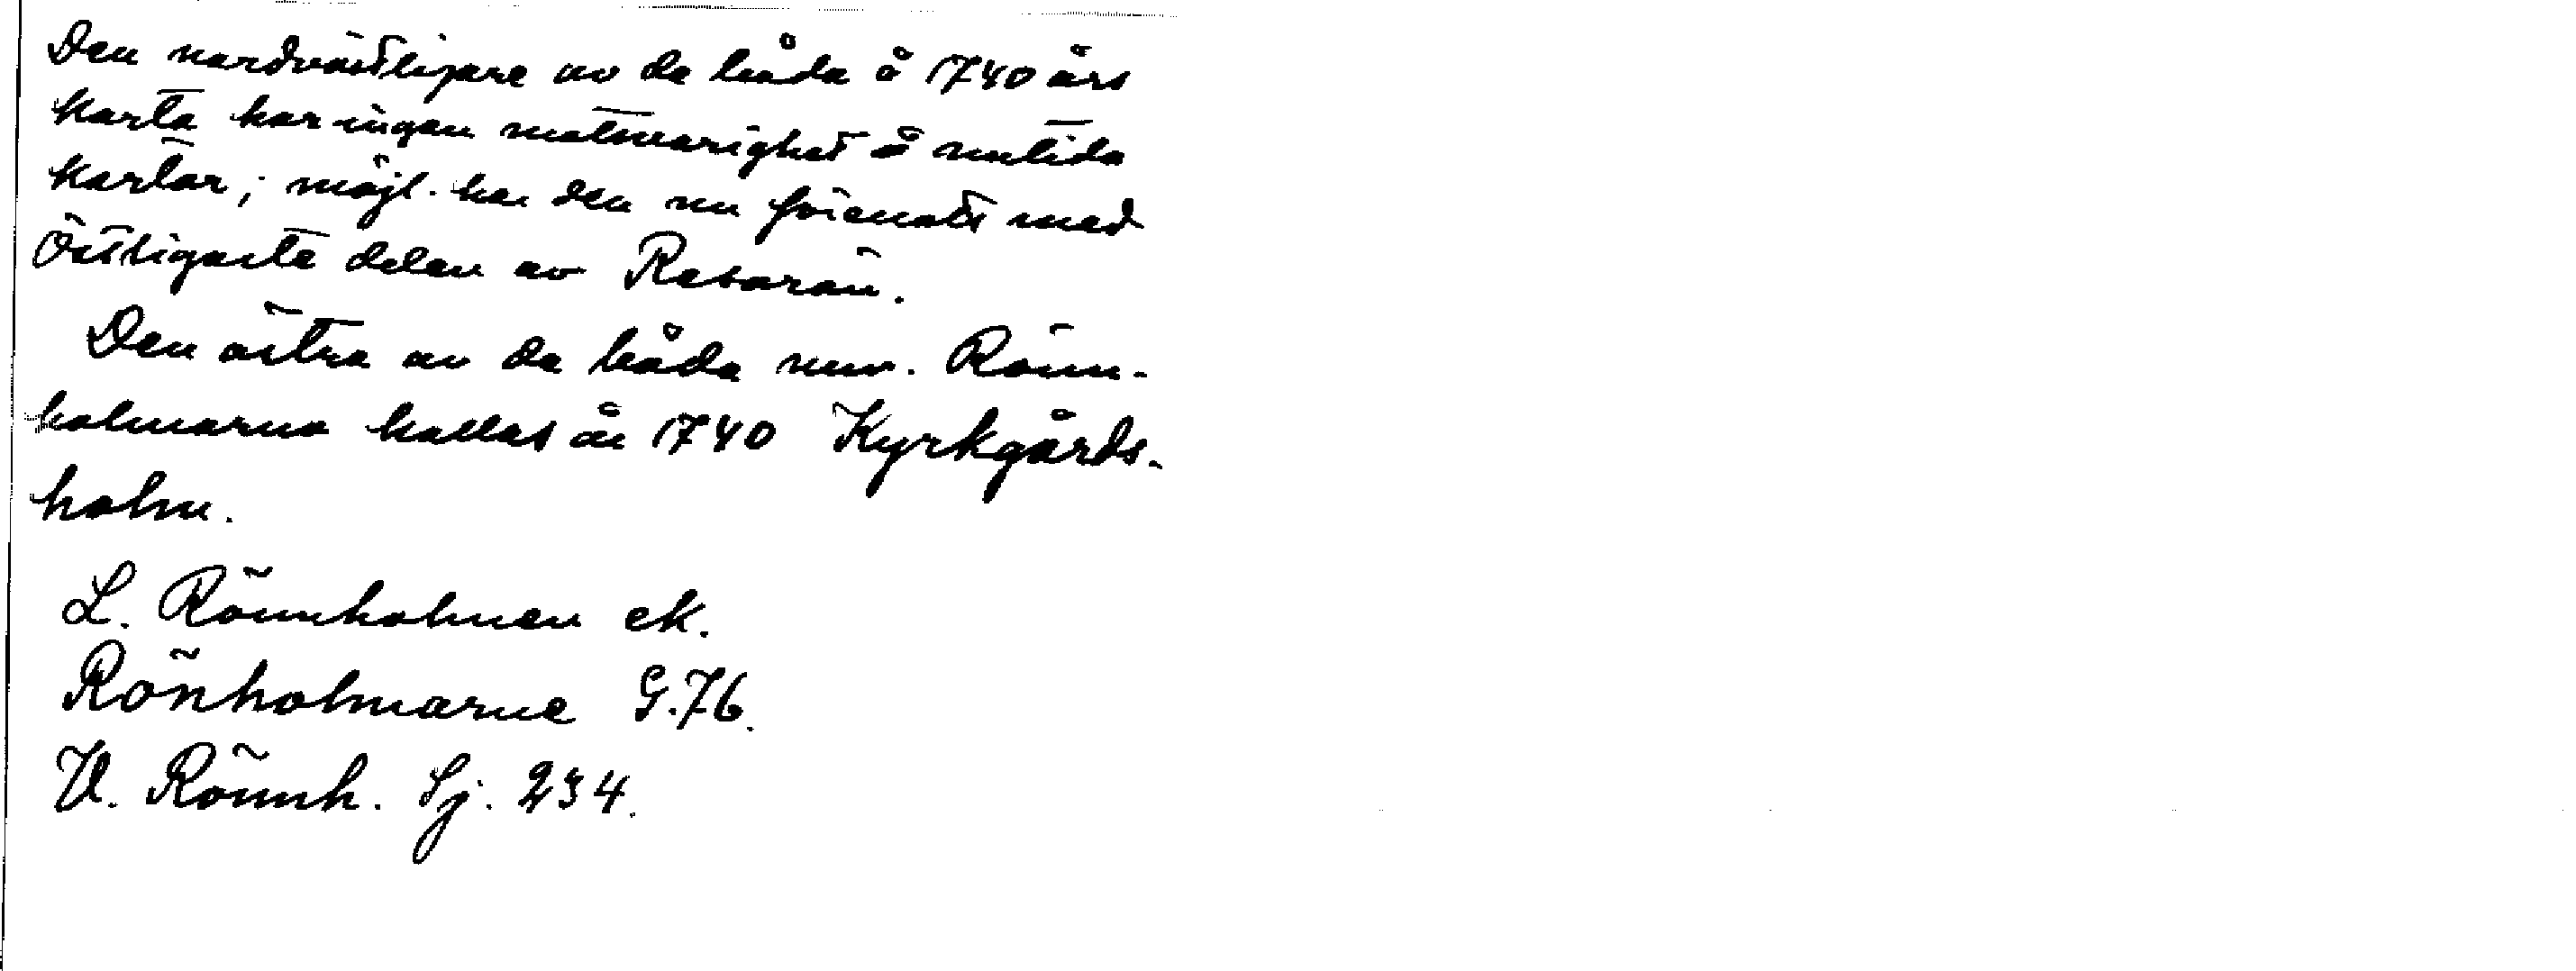 Den nordvästligare av de båda å 1740 års
karta har ingen motsvarighet å nutida
kartor; möjl. har den nu förenats med
östligaste delen av Resarön.
Den östra av de båda nuv. Rönn-
holmarna kallas år 1740 Kyrkgårds-
holm.
L. Rönnholmen ek.
Rönholmarne G.76.
V. Rönnh. Sj. 234.